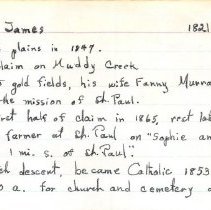 James 1821
plains in 1847.
claim on Muddy Creek
gold fields, his wife Fanny Murra
the mission of St. Paul.
half of claim in 1865, rest
farmer at St. Paul on "Sophie an
1 mi. s. of St. Paul".
descent, became Catholic 1853
a. for church and cemetery